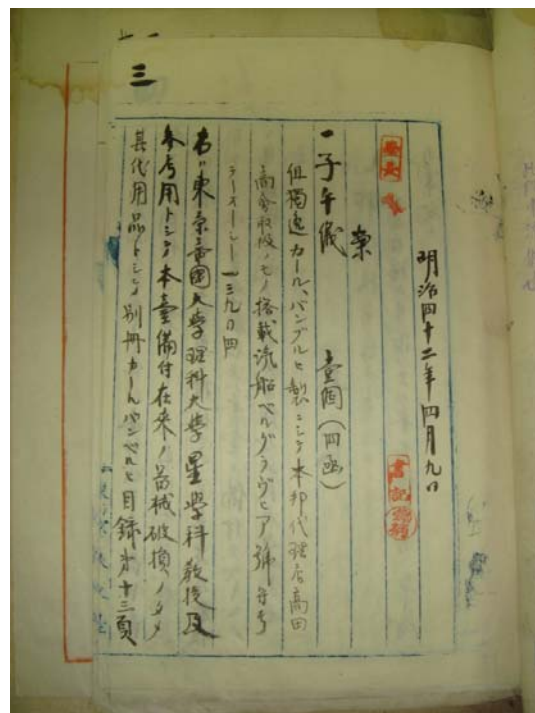 三
明治四十二年四月九日
臺長
書記
案
一子午儀 壹個（四函）
但獨逸カール、バンブルヒ製ニシテ本邦代理店高田
商會取扱ノモノ搭載汽船ベルグラヴヒア號
一三九〇四
右ハ東京帝國大學理科大學星學科教授及
参考用トシテ本臺備付在来ノ器械破損ノタメ
其代用品トシテ別冊カールバンベルヒ目録第十三頁